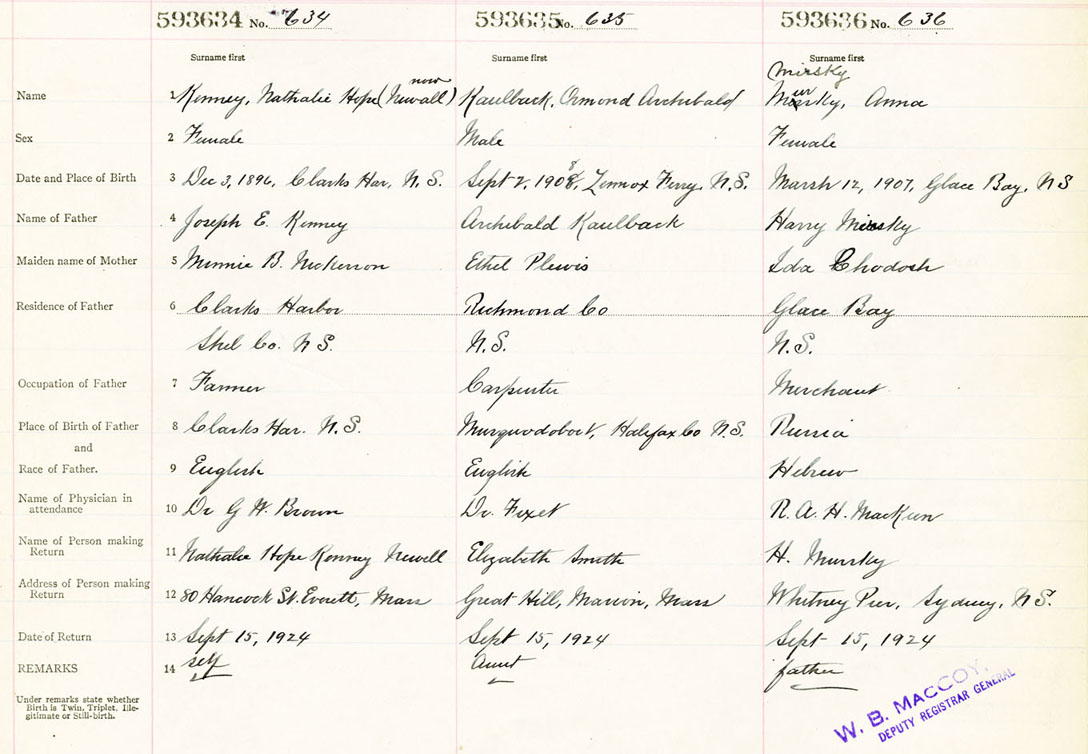 593634 No. 634 593635 No. 635 593636 No. 636
Surname first Surname first Surname first
now Mirsky
Name 1 Kenney, Nathalie Hope (Newall) Kaulback, Ormond Archibald Mirsky, Anna
Sex 2 Female Male Female
Date and Place of Birth 3 Dec 3, 1896, Clarks Har, N.S. Sept 2, 1908, Lennox Ferry, N.S. Marsh 12, 1907, Glace Bay, NS
Name of Father 4 Joseph E. Kenney Archibald Kaulback Harry Mirsky
Maiden name of Mother 5 Minnie B. Nickerson Ethel Plewis Ida Chodosh
Residence of Father 6 Clarks Harbor Richmond Co Glace Bay
Shel Co. N S. N.S. N.S.
Occupation of Father 7 Farmer Carpenter Merchant
Place of Birth of Father 8 Clarks Har. N.S. Musquodoboit, Halifax Co N.S. Russia
and
Race of Father. 9 English English Hebrew
Name of Physician in attendance 10 Dr G W. Brown Dr. Fixet R. A. H. MacKeen
Name of Person making Return 11 Nathalie Hope Kenney Newell Elizabeth Smith H. Mursky
Address of Person making Return 12 80 Hancock St. Everett, Mass Great Hill, Marion, Mass Whitney Pier, Sydney, N.S.
Date of Return 13 Sept 15, 1924 Sept 15, 1924 Sept 15, 1924
REMARKS 14 self Aunt father
Under remarks state whether
Birth is Twin, Triplet, Ille-
gitimate or Still-birth.
W. B. MACCOY,
DEPUTY REGISTRAR GENERAL